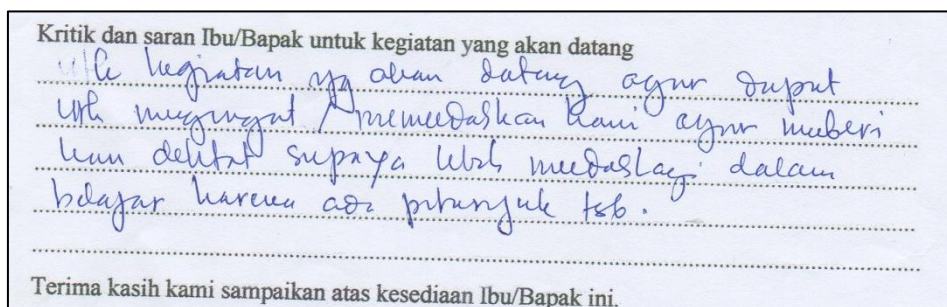 Kritik dan saran Ibu/Bapak untuk kegiatan yang akan datang
utk kegiatan yg akan datang agar dapat
utk mengingat / memudahkan kami agar memberi
kan diktat supaya lebih mudah lagi dalam
belajar karena ada petunjuk tsb.
Terima kasih kami sampaikan atas kesediaan Ibu/Bapak ini.